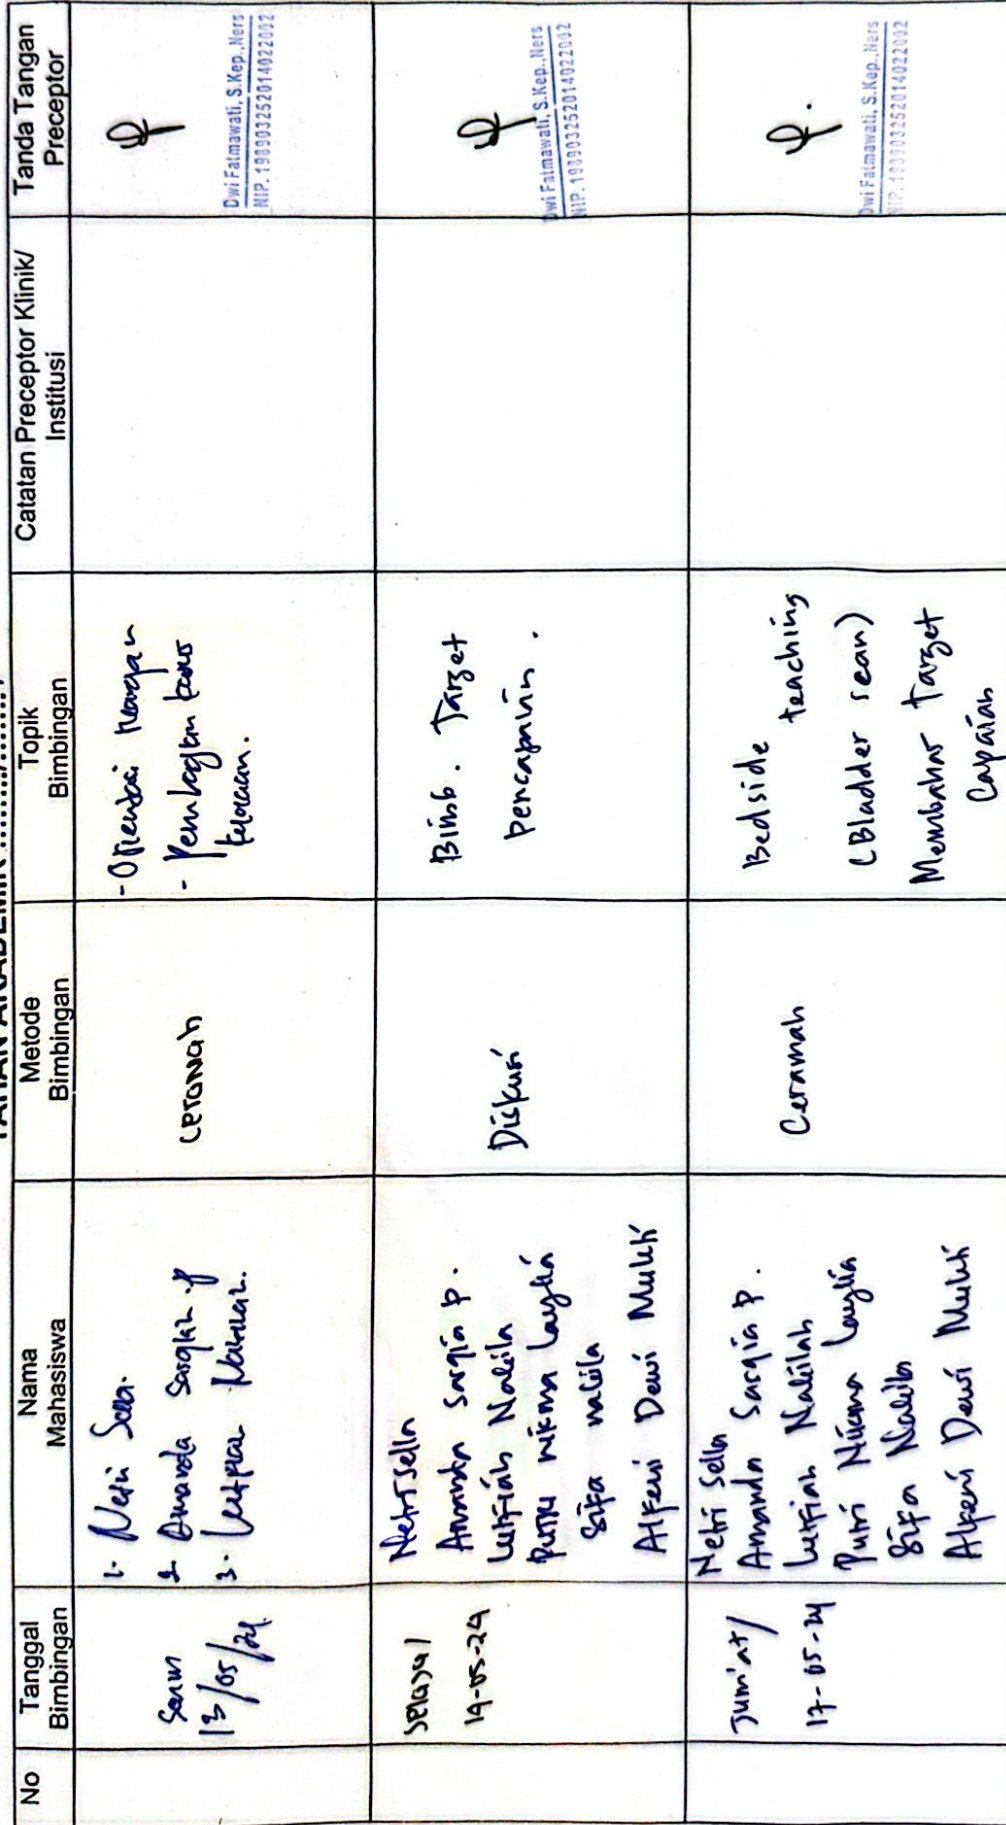 TAHUN AKADEMIK ............/............
No
Tanggal
Bimbingan
Nama
Mahasiswa
Metode
Bimbingan
Topik
Bimbingan
Catatan Preceptor Klinik/
Institusi
Tanda Tangan
Preceptor
Senin
13/05/24.
1. Netri Sella.
2. Amanda Sasqia .P
3. Lutfiah Nailah.
ceramah
- Orientasi ruangan
- Pembagian kasus
kelolaan.
Dwi Fatmawati, S.Kep.,Ners
NIP. 198903252014022002
selasa/
14-05-24
Netri sella
Amanda Sasqia P.
Lutfiah Naila
Putri nikma Laylia
Sifa naila
Alfeni Dewi Mukti
Diskusi
Bimb. Target
pencapaian.
Dwi Fatmawati, S.Kep.,Ners
NIP. 198903252014022002
Jum'at/
17-05-24
Netri Sella
Amanda Sasqia P.
Lutfiah Nailah
Putri Nikma Laylia
Sifa Naila
Alfeni Dewi Mukti
Ceramah
Bedside teaching
(Bladder scan)
Membahas target
Capaian
Dwi Fatmawati, S.Kep.,Ners
NIP. 198903252014022002